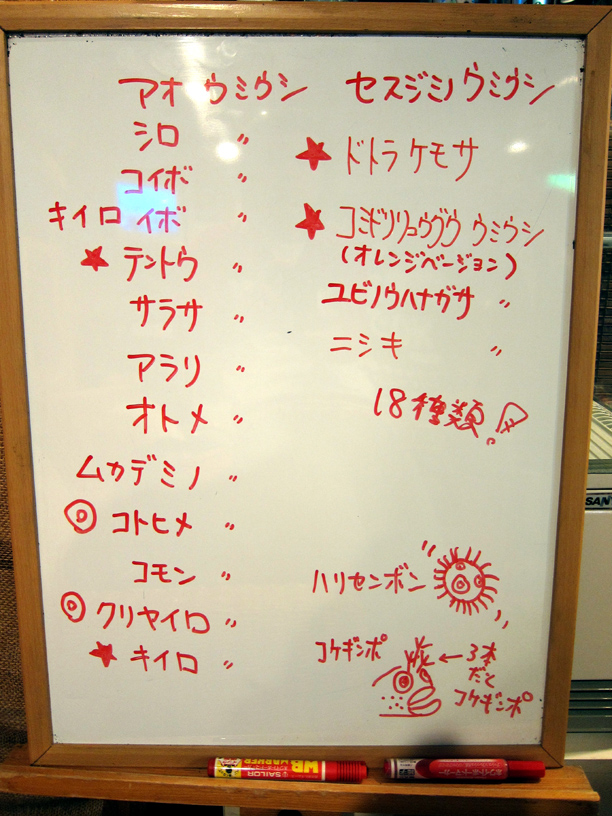 アオウミウシ
シロ 〃
コイボ 〃
キイロイボ 〃
★テントウ 〃
サラサ 〃
アラリ 〃
オトメ 〃
ムカデミノ 〃
◎コトヒメ 〃
コモン 〃
◎クリヤイロ 〃
★キイロ 〃
セスジミノウミウシ
★ドトラケモサ
★コミドリリュウグウウミウシ
(オレンジベージョン)
ユビノウハナガサ 〃
ニシキ 〃
18種類!
ハリセンボン
コケギンポ
←3本
だと
コケギンポ
SAN
WB
MARKER
SAILOR